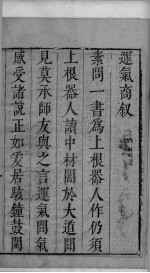 運氣商叙
素問一書爲上根器人作仍須
上根器人讀中材關於大道間
見莫承師友與之言運氣間氣
感受諸說正如爰居駭鐘鼓闖